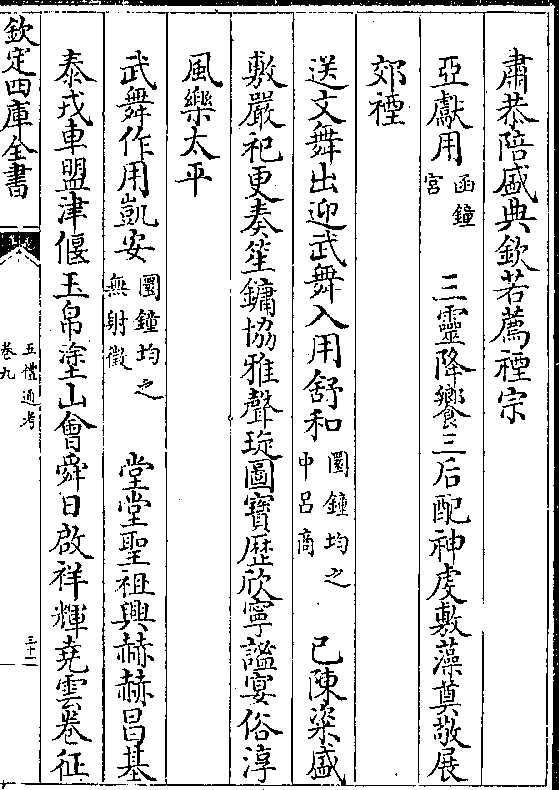 肅恭陪盛典欽若薦禋宗
亞獻用函鐘宮　三靈降饗三后配神虔敷藻奠敬展
郊禋
送文舞出迎武舞入用舒和圜鐘均之中呂商　已陳粢盛
敷嚴祀更奏笙鏞協雅聲琁圖寶歴欣寧謐宴俗淳
風樂太平
武舞作用凱安圜鐘均之無射徴　堂堂聖祖興赫赫昌基
泰戎車盟津偃玉帛塗山會舜日啟祥輝堯雲卷征
欽定四庫全書
五禮通考
卷九
三十二